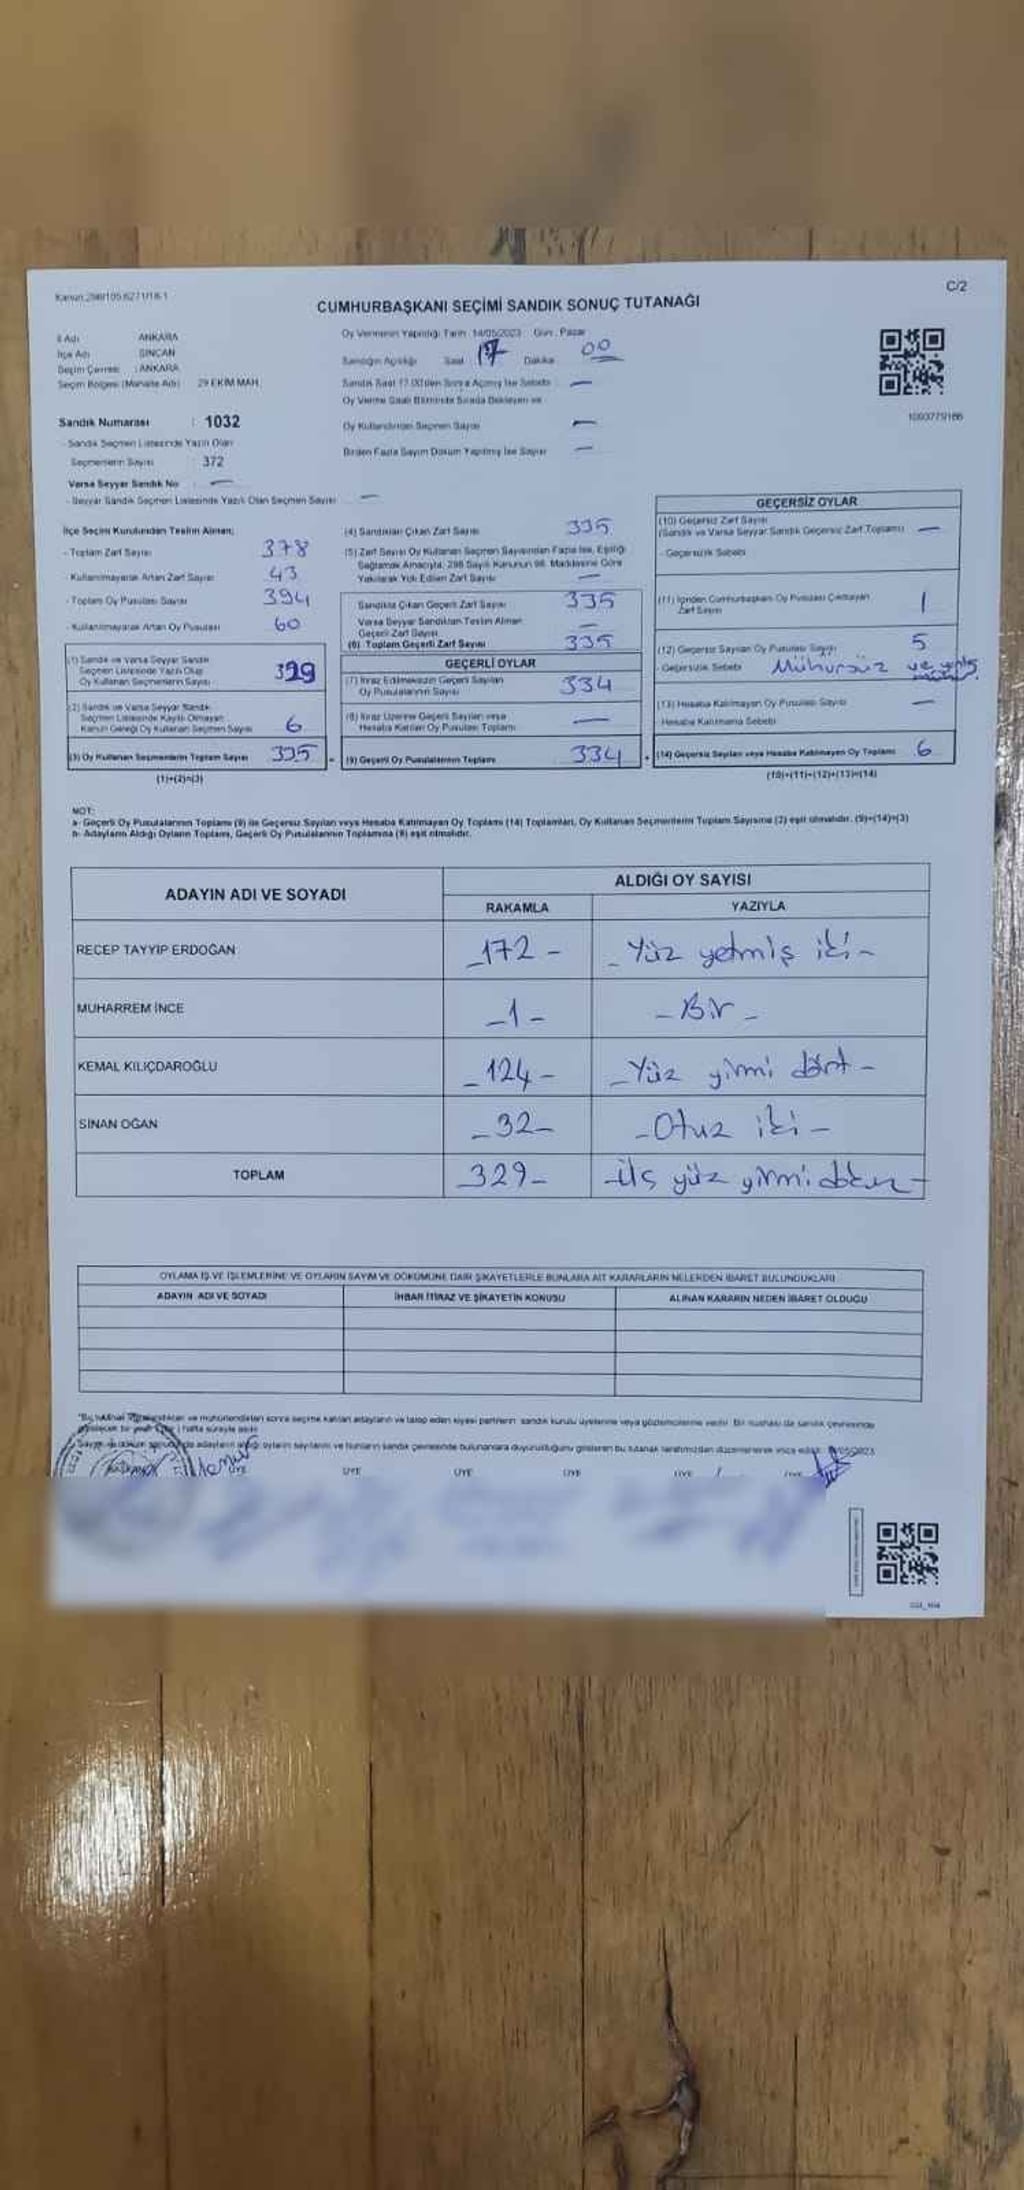 Kanun:298/105,6271/18-1
C/2
CUMHURBAŞKANI SEÇİMİ SANDIK SONUÇ TUTANAĞI
İl Adı : ANKARA
İlçe Adı : SİNCAN
Seçim Çevresi : ANKARA
Seçim Bölgesi (Mahalle Adı) : 29 EKİM MAH.
Oy Vermenin Yapıldığı Tarih : 14/05/2023 Gün : Pazar
Sandığın Açıldığı Saat 17 Dakika 00
Sandık Saat 17.00'den Sonra Açılmış İse Sebebi : —
Oy Verme Saati Bitiminde Sırada Bekleyen ve
Oy Kullandırılan Seçmen Sayısı —
Birden Fazla Sayım Döküm Yapılmış İse Sayısı —
Sandık Numarası : 1032
- Sandık Seçmen Listesinde Yazılı Olan
Seçmenlerin Sayısı : 372
Varsa Seyyar Sandık No : —
- Seyyar Sandık Seçmen Listesinde Yazılı Olan Seçmen Sayısı : —
İlçe Seçim Kurulundan Teslim Alınan;
- Toplam Zarf Sayısı 378
- Kullanılmayarak Artan Zarf Sayısı 43
- Toplam Oy Pusulası Sayısı 394
- Kullanılmayarak Artan Oy Pusulası 60
(1) Sandık ve Varsa Seyyar Sandık
Seçmen Listesinde Yazılı Olup
Oy Kullanan Seçmenlerin Sayısı 329
(2) Sandık ve Varsa Seyyar Sandık
Seçmen Listesinde Kayıtlı Olmayan
Kanun Gereği Oy Kullanan Seçmen Sayısı 6
(3) Oy Kullanan Seçmenlerin Toplam Sayısı 335
(1)+(2)=(3)
(4) Sandıktan Çıkan Zarf Sayısı 335
(5) Zarf Sayısı Oy Kullanan Seçmen Sayısından Fazla İse, Eşitliği
Sağlamak Amacıyla, 298 Sayılı Kanunun 98. Maddesine Göre
Yakılarak Yok Edilen Zarf Sayısı —
Sandıkta Çıkan Geçerli Zarf Sayısı 335
Varsa Seyyar Sandıktan Teslim Alınan
Geçerli Zarf Sayısı —
(6) Toplam Geçerli Zarf Sayısı 335
GEÇERLİ OYLAR
(7) İtiraz Edilmeksizin Geçerli Sayılan
Oy Pusulalarının Sayısı 334
(8) İtiraz Üzerine Geçerli Sayılan veya
Hesaba Katılan Oy Pusulası Toplamı —
(9) Geçerli Oy Pusulalarının Toplamı 334
GEÇERSİZ OYLAR
(10) Geçersiz Zarf Sayısı
(Sandık ve Varsa Seyyar Sandık Geçersiz Zarf Toplamı) —
- Geçersizlik Sebebi
(11) İçinden Cumhurbaşkanı Oy Pusulası Çıkmayan
Zarf Sayısı 1
(12) Geçersiz Sayılan Oy Pusulası Sayısı 5
- Geçersizlik Sebebi Mühürsüz ve yanlış
(13) Hesaba Katılmayan Oy Pusulası Sayısı —
- Hesaba Katılmama Sebebi
(14) Geçersiz Sayılan veya Hesaba Katılmayan Oy Toplamı 6
(10)+(11)+(12)+(13)=(14)
NOT:
a- Geçerli Oy Pusulalarının Toplamı (9) ile Geçersiz Sayılan veya Hesaba Katılmayan Oy Toplamı (14) Toplamları, Oy Kullanan Seçmenlerin Toplam Sayısına (3) eşit olmalıdır. (9)+(14)=(3)
b- Adayların Aldığı Oyların Toplamı, Geçerli Oy Pusulalarının Toplamına (9) eşit olmalıdır.
ADAYIN ADI VE SOYADI ALDIĞI OY SAYISI
RAKAMLA YAZIYLA
RECEP TAYYİP ERDOĞAN -172- -Yüz yetmiş iki-
MUHARREM İNCE -1- -Bir-
KEMAL KILIÇDAROĞLU -124- -Yüz yirmi dört-
SİNAN OĞAN -32- -Otuz iki-
TOPLAM -329- -Üç yüz yirmi dokuz-
OYLAMA İŞ VE İŞLEMLERİNE VE OYLARIN SAYIM VE DÖKÜMÜNE DAİR ŞİKAYETLERLE BUNLARA AİT KARARLARIN NELERDEN İBARET BULUNDUKLARI
ADAYIN ADI VE SOYADI İHBAR İTİRAZ VE ŞİKAYETİN KONUSU ALINAN KARARIN NEDEN İBARET OLDUĞU
ve mühürlendikten sonra seçime katılan adayların ve talep eden siyasi partilerin sandık kurulu üyelerine veya gözlemcilerine verilir. Bir nüshası da sandık çevresinde
hafta süreyle asılır.
adayların aldığı oyların sayılarını ve bunların sandık çevresinde bulunanlara duyurulduğunu gösteren bu tutanak tarafımızdan düzenlenerek imza edildi.
ÜYE ÜYE ÜYE ÜYE ÜYE ÜYE